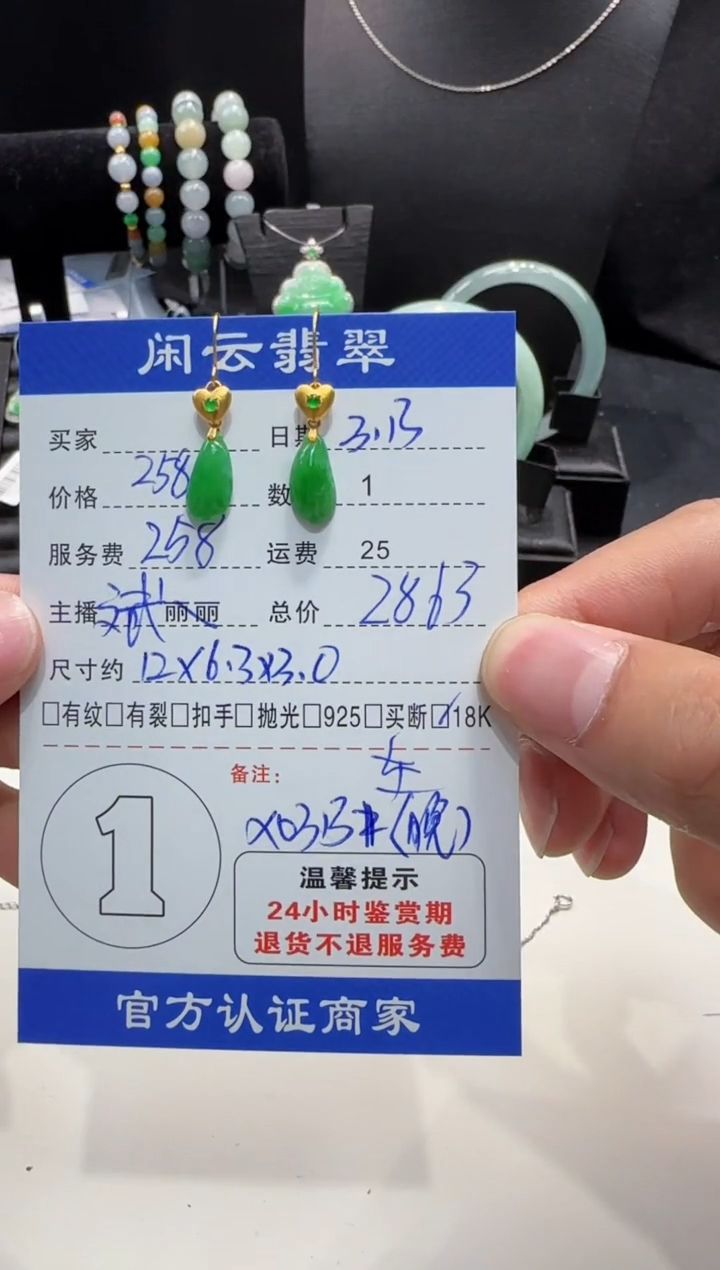 闲云翡翠
买家 日期 3.13
价格 258 数 1
服务费 258 运费 25
主播 斌 丽丽 总价 2863
尺寸约 12×6.3×3.0
□有纹□有裂□扣手□抛光□925□买断☑18K
备注:
X0313#(晚)
1
温馨提示
24小时鉴赏期
退货不退服务费
官方认证商家